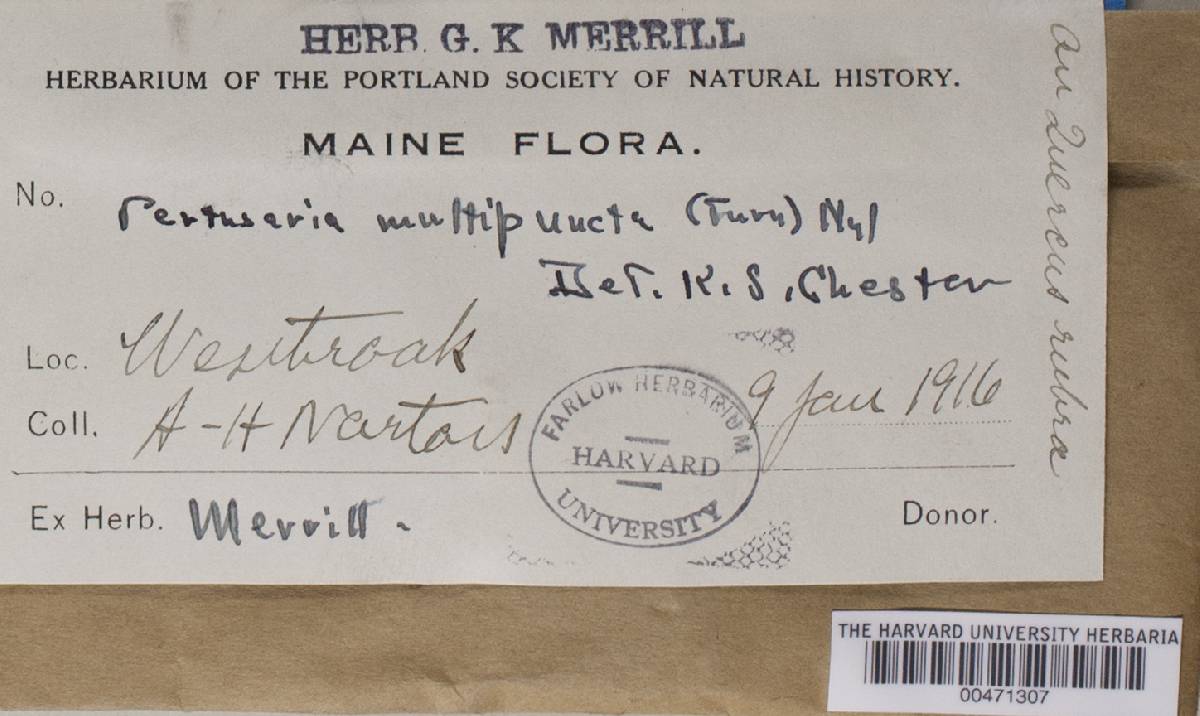 HERB. G. K MERRILL
HERBARIUM OF THE PORTLAND SOCIETY OF NATURAL HISTORY.
MAINE FLORA.
No. Pertusaria multipuncta (Turn) Nyl
Det. K. S. Chester
Loc. Westbrook
Coll. A-H Norton 9 Jan 1916
Ex Herb. Merrill. Donor.
on Quercus rubra
FARLOW HERBARIUM
HARVARD
UNIVERSITY
THE HARVARD UNIVERSITY HERBARIA
00471307